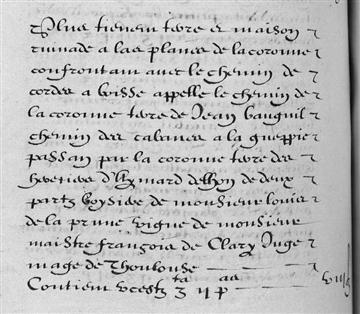 Plus tienent terre et maison
ruinade a las planes de la coronne
confrontant avec le chemin de
cordes a boisse appelle le chemin de
la coronne terre de Jean bauguil
chemin des cabanes a la gueppie
passan par la coronne terre des
heretiers d'Aymard delbon de deux
partz boysiere de monsieur louis
de la prune vigne de monsieur
maistre françois de Clary Juge
mage de Thoulouse
Contien